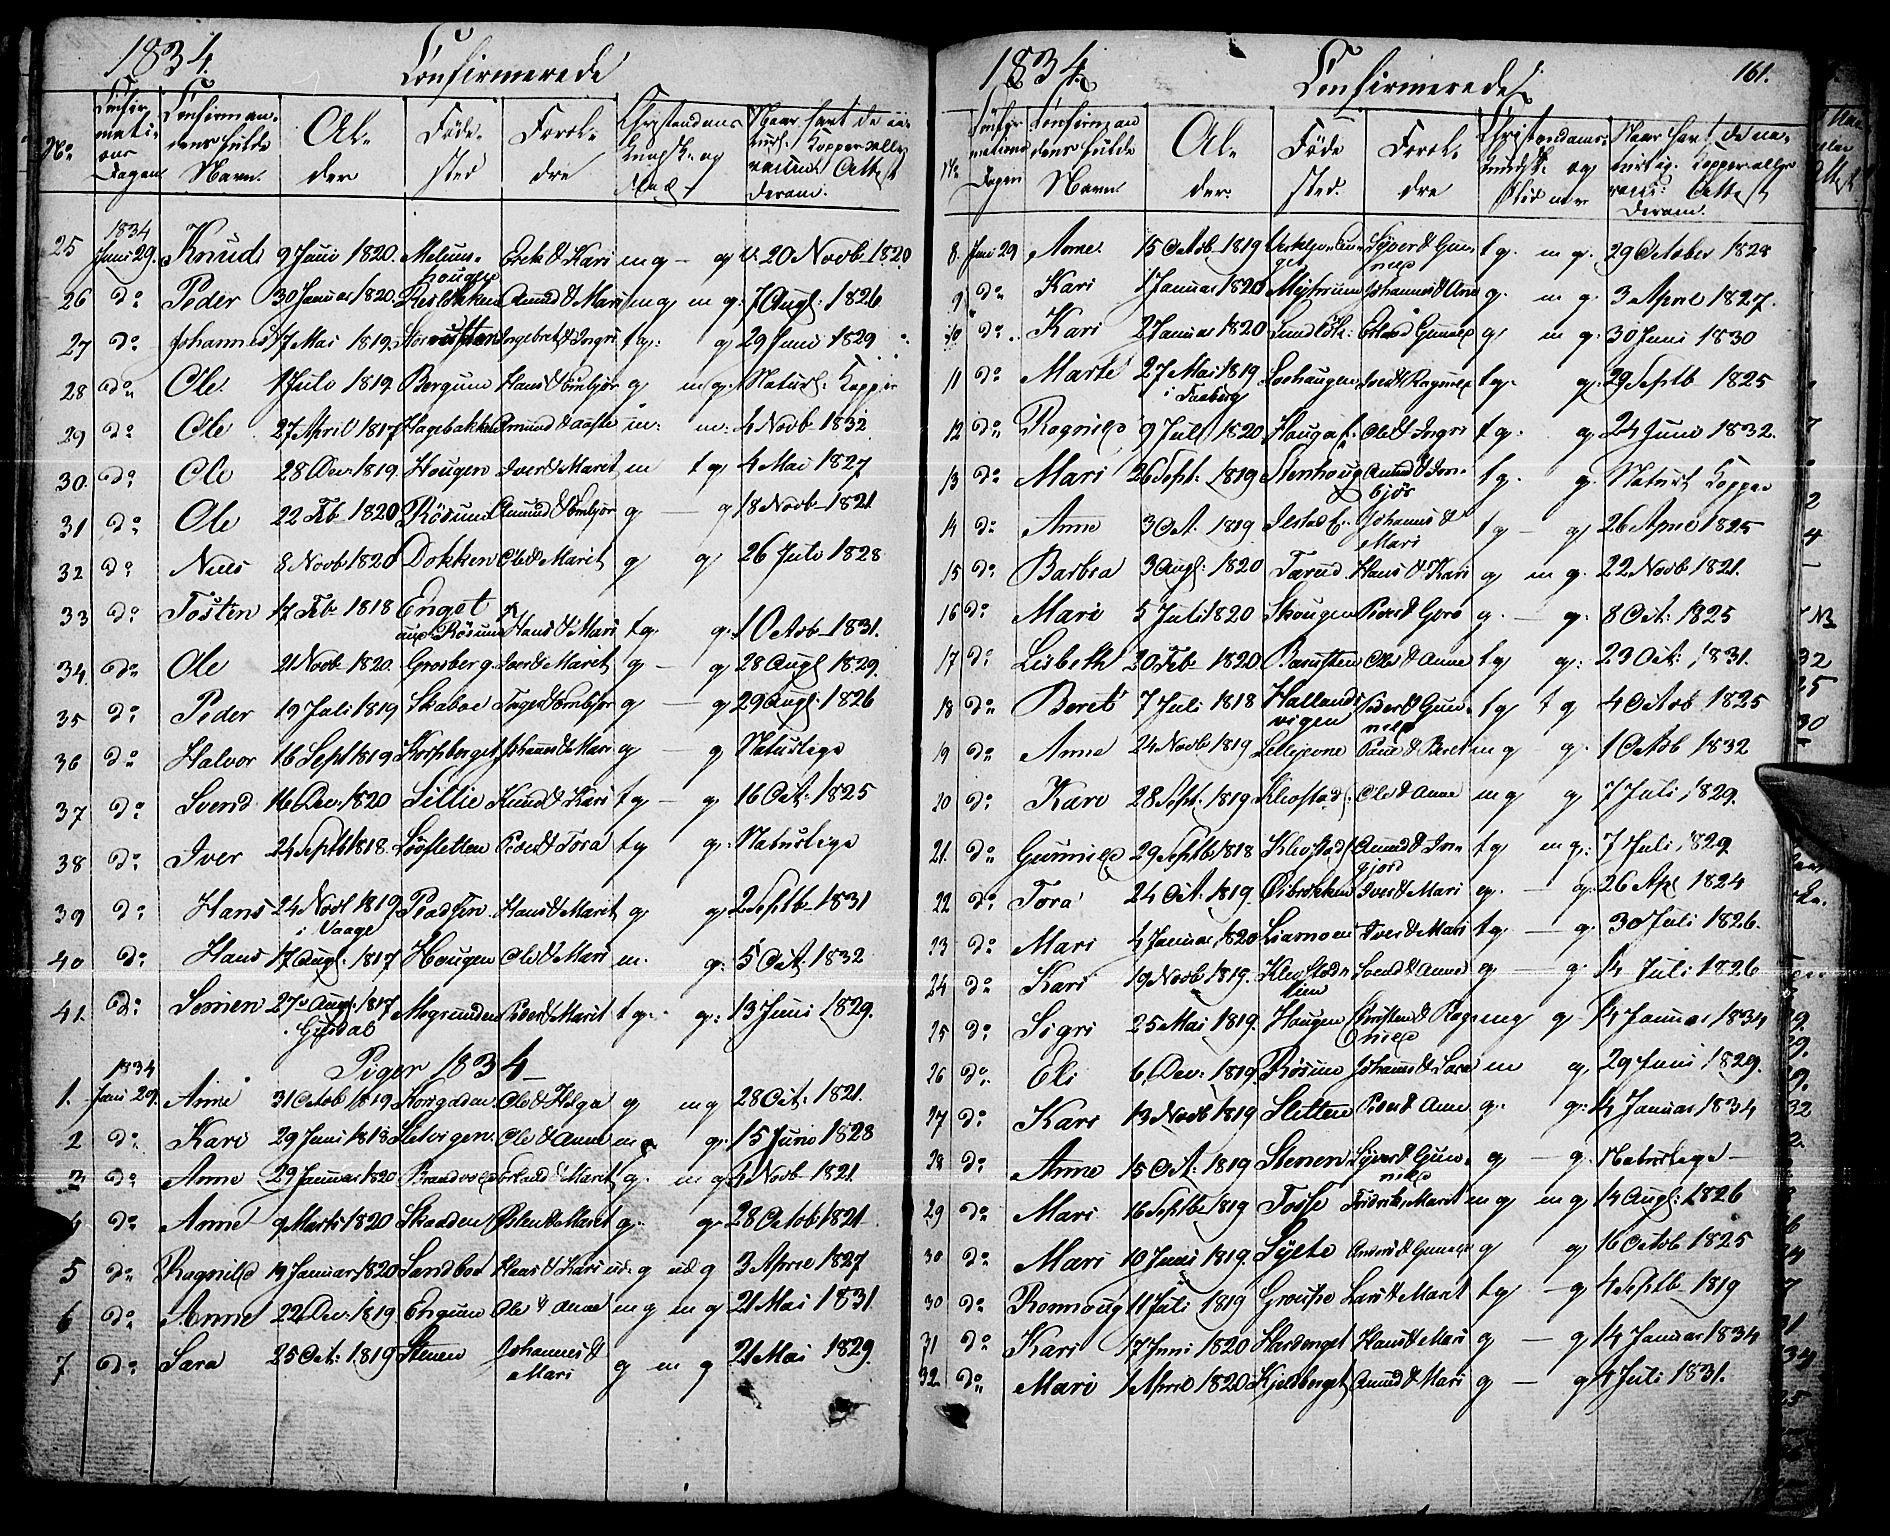 1834.
Confirmerede
No
Confirmations Dagen
Confirmandens fulde Navn.
Alder
Fødested
Forældre
Christendoms Kundsk. og Flid
Naar havt de naturl. Kopper eller vaccine Attest derom.
1834
25 Juni 29. Knud 9 Juni 1820. Kari mg — g v. 20 Novb. 1820
26 do Peder 30 Januar 1820. Amund & Mari mg m g. 7 Augs: 1826
27 do Johannes 17 Mai 1819. Ingebret & Ingri tg. g 29 Juni 1829
28 do Ole 1 Julo 1819. Bergum Hans & Embjør g m g. Naturl: Kopper
29 do Ole 27 April 1817 Hagebakken Amund & m: m: 4 Novb 1832
30. do Ole 28 Dec: 1819. Hougen Iver & Marit m t g 4 Mai 1827
31 do Ole 22 Feb 1820 Rösum Amund & Embjør g — g 18 Novb 1821
32 do Niels 8 Novb 1820 Dokken Ole & Marit g g 26 Julo 1828
33 do Tosten 17 Feb 1818 Enget Rösum Hans & Mari tg. g. 1 Octob 1831.
34 do Ole 21 Novb 1820. Grosberg. Iver & Marit g — g 28 Augs 1829.
35 do Peder 19 Juli 1819 Skaboe Embjør g — g 29 Augs: 1826
36 do Halvor 16 Sept 1819 Korpberget Johannes & Mari g — g Naturlige
37 do Svend 16 Dec: 1820 Sillie Knud & Kari tg — g 16 Oct: 1825
38 do Iver 24 Septb 1818. Løvsletten Peder & Tora tg g. Naturlige
39 do Hans 24 Novb 1819 i Vaage Hans & Marit g g 2 Septb 1831
40 do Hans 17 Augs. 1817 Hougen Ole & Mari m. g. 5 Oct. 1832
41. do Simen 27 Augs: 1817 Gusdal Mogrinden Peder & Marit tg. g: 13 Juni 1829.
Piger 1834
1834
1. Juni 29. Anne 31 Octob 1819 Korsgaden. Ole & Helga g m g 28 Oct: 1821.
2 do Kari 29 Juni 1818 Selvigen. Ole & Anne m g g. 15 Juno 1828
3 do Anne 29 Januar 1820 Brandvold Erland & Marit g. m g 4 Novb 1821.
4 do Anne 9 Marts 1820 Skadden Østen & Marit g. g. 28 Octob 1821.
5 do Ragnild 19 Januar 1820 Sandboe Klaas & Kari ud: g ud g 3 April 1827
6 do Anne 22 Dec: 1819. Engum Ole & Anne mg m g 21 Mai 1831
7 do Sara 25 Oct: 1819 Stenen Johannes & Mari g m g 21 Mai 1829.
1834.
Confirmerede
161.
No
Confirmations Dagen
Confirmandens fulde Navn.
Alder.
Fødested.
Forældre
Christendoms-kundsk. og Flid
Naar havt de naturlig: Kopper eller vacci: Attest derom.
8. Juni 29 Anne. 15 Octob. 1819 Syver & Gunnild tg. m g. 29 October 1828
9 do Kari 1 Januar 1820 Johannes & Ane g. m g. 3 April 1827.
10 do Kari 2 Januar 1820 Gunild g m g. 30 Juni 1830
11 do Marte 27 Mai 1819 i Faaberg Lohaugen Iver & Ragnild tg. g. 29 Septb 1825
12 do Ragnild 9 Juli 1820 Ole & Ingri tg. g. 24 Juni 1832.
13 do Mari 26 Sept: 1819 Stenhoug Amund & Imbjør tg. g. Naturl Kopper
14 do Anne 3 Oct. 1819. Johannes & Mari tg — g 26 April 1825
15 do Barbra 3 Augs: 1820 Tarud Hans & Kari g m g. 22 Novb 1821.
16 do Mari 5 Juli 1820 Skougen Peder & Goro g. — g. 8 Oct: 1825
17 do Lisbeth 20 Feb 1820 Ole & Anne tg g: 23 Oct: 1831.
18 do Beret 7 Juli 1818 Hallandsvigen Peder & Gunnild tg t g 4 Octob 1825
19 do Anne 24 Novb 1819 & Beret mg g. 1 Octob 1832
20 do Kari 28 Sept: 1819. Klevstad: Ole & Anne mg g 7 Juli 1829.
21. do Gunnild 29 Septb 1818 Klevstad Amund & Ingjord tg m g: 7 Juli 1829
22 do Tora 24 Oct: 1819. Øibrekken Iver & Mari g. — g. 26 Apl 1824
23 do Mari 4 Januar 1820 Liamoen Iver & Mari tg. — g. 30 Juli 1826.
24 do Kari 19 Novb 1819. Klevstadlien Svend & Anne g. — g. 14 Juli 1826
25 do Sigri 25 Mai 1819. Hougen Christen & Ragnild mg g. 14 Januar 1834
26 do Eli 6 Dec: 1819. Rösum Johannes & Sara m g. 29 Juni 1829.
27 do Kari 13 Novb 1819 Sletten Peder & Anne g. g: 14 Januar 1834
28 do Anne 15 Oct. 1819 Stenen Syver & Gunnild g — g. Naturlige —
29 do Mari 16 Septb 1819 Tofte Fredrik & Marit mg m g 14 Augs: 1826
30 do Mari 10 Juni 1819. Sylte Anders & Gunild g g 16 Octob 1825
30 do Ronnoug 11 Juli 1819 Graupe Lars & Marit tg — g 4 Septb 1819
31 do Kari 17 Juni 1820 Hardenget Hans & Mari g — g 14 Januar 1834
32 do Mari 1 April 1820 Kjelsberget Amund & Mari g — g 4 Juli 1831.